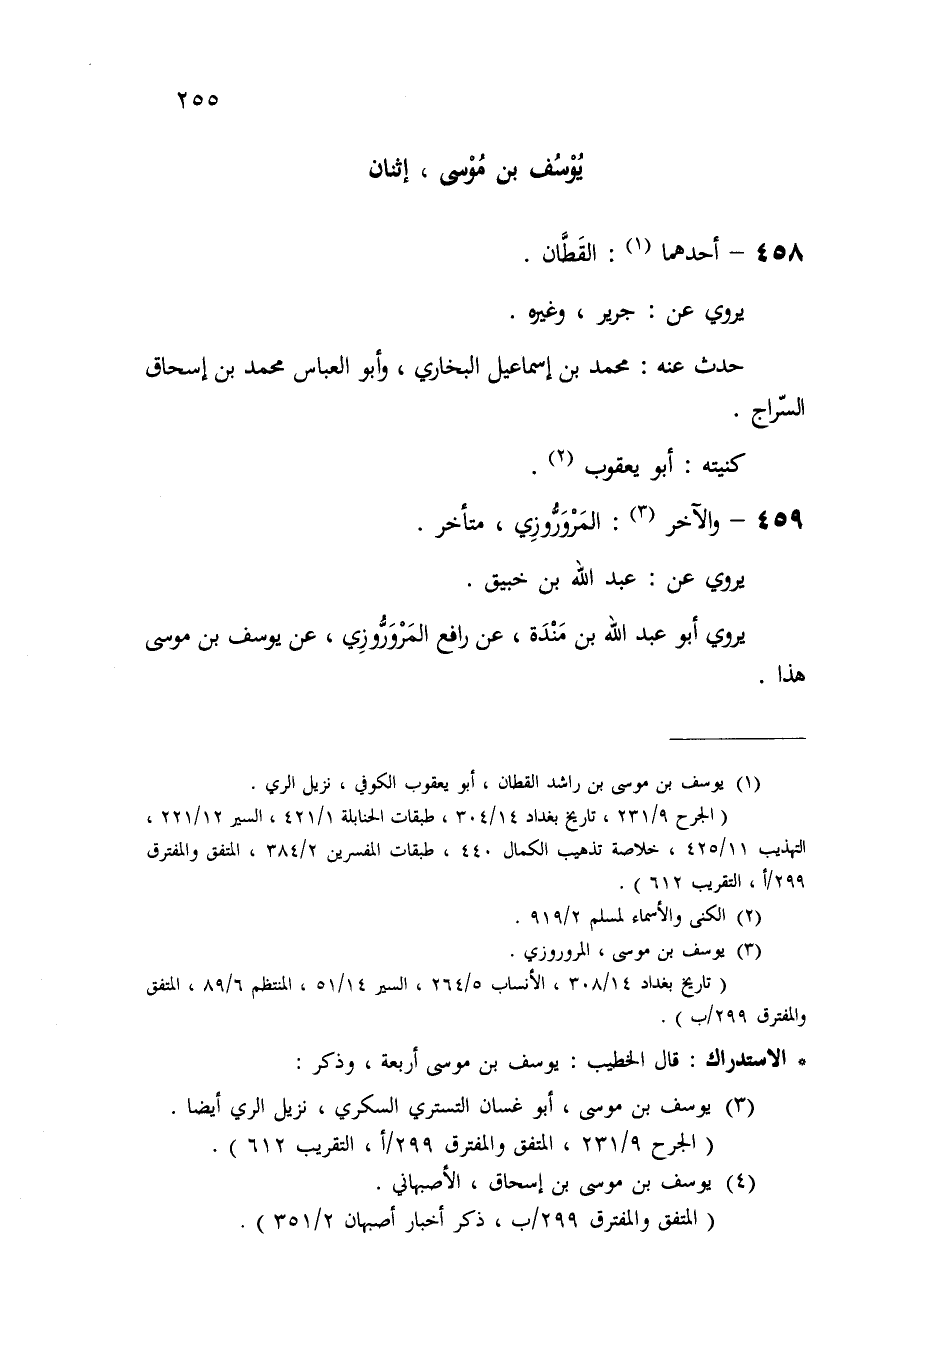 ٢٥٥
يُوْسُف بن مُوْسى ، إثنان
٤٥٨ – أحدهما (١) : القَطَّان .
يروي عن : جرير ، وغيره .
حدث عنه : محمد بن إسماعيل البخاري ، وأبو العباس محمد بن إسحاق
السّراج .
كنيته : أبو يعقوب (٢) .
٤٥٩ – والآخر (٣) : المَرْوَرُّوزِي ، متأخر .
يروي عن : عبد الله بن خبيق .
يروي أبو عبد الله بن مَنْدَة ، عن رافع المَرْوَرُّوزِي ، عن يوسف بن موسى
هذا .
(١) يوسف بن موسى بن راشد القطان ، أبو يعقوب الكوفي ، نزيل الري .
( الجرح ٢٣١/٩ ، تاريخ بغداد ٣٠٤/١٤ ، طبقات الحنابلة ٤٢١/١ ، السير ٢٢١/١٢ ،
التهذيب ٤٢٥/١١ ، خلاصة تذهيب الكمال ٤٤٠ ، طبقات المفسرين ٣٨٤/٢ ، المتفق والمفترق
٢٩٩/أ ، التقريب ٦١٢ ) .
(٢) الكنى والأسماء لمسلم ٩١٩/٢ .
(٣) يوسف بن موسى ، المروروزي .
( تاريخ بغداد ٣٠٨/١٤ ، الأنساب ٢٦٤/٥ ، السير ٥١/١٤ ، المنتظم ٨٩/٦ ، المتفق
والمفترق ٢٩٩/ب ) .
* الاستدراك : قال الخطيب : يوسف بن موسى أربعة ، وذكر :
(٣) يوسف بن موسى ، أبو غسان التستري السكري ، نزيل الري أيضا .
( الجرح ٢٣١/٩ ، المتفق والمفترق ٢٩٩/أ ، التقريب ٦١٢ ) .
(٤) يوسف بن موسى بن إسحاق ، الأصبهاني .
( المتفق والمفترق ٢٩٩/ب ، ذكر أخبار أصبهان ٣٥١/٢ ) .